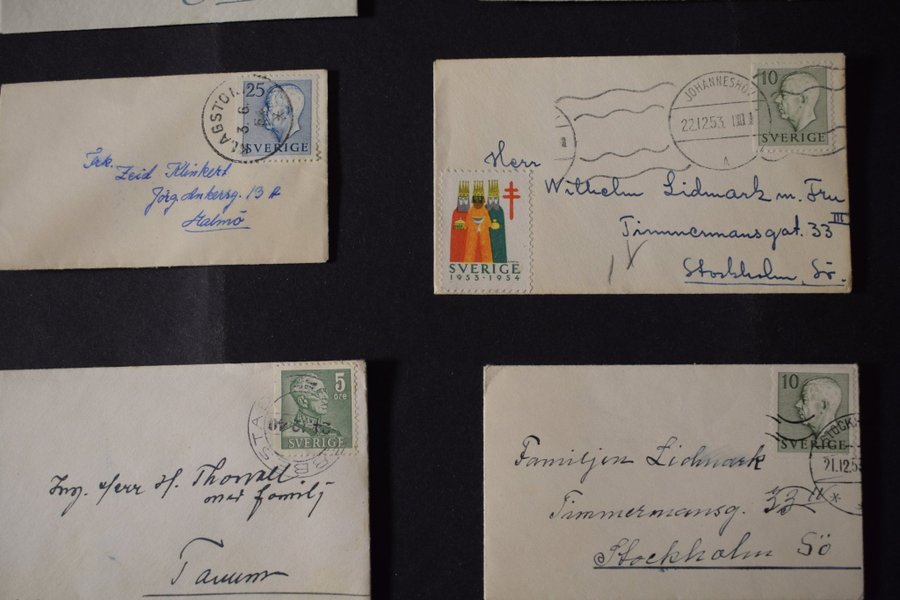 25
SVERIGE
KLAGSTORP
3. 6.
Frk.
Zeid Klinkert
Jörg.Ankersg. 13 A
Malmö
JOHANNESHOV
22.12.53.
10
SVERIGE
Herr
Wilhelm Lidmark m. Fru
Timmermansgat. 33 III
Stockholm, Sö.
SVERIGE
1953-1954
5
öre
SVERIGE
Ing. Herr H. Thorvall
med familj
Tanum
10
SVERIGE
STOCKH
21.12.53
Familjen Lidmark
Timmermansg. 33
Stockholm Sö